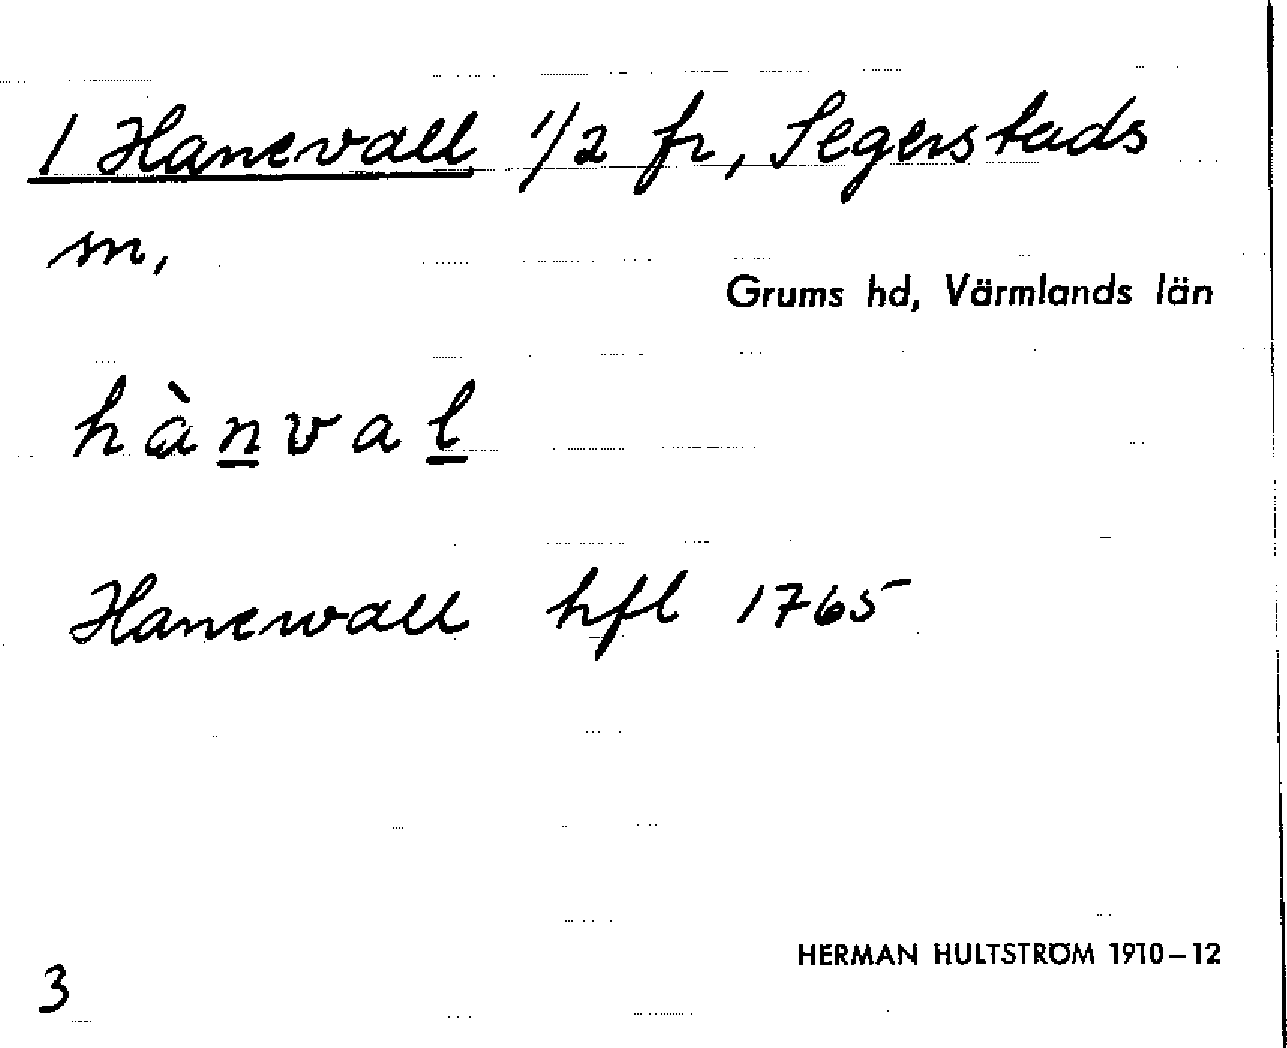 1 Hanevall 1/2 fr, Segerstads
sn,
Grums hd, Värmlands län
hànval
Hanewall hfl 1765
HERMAN HULTSTRÖM 1910–12
3